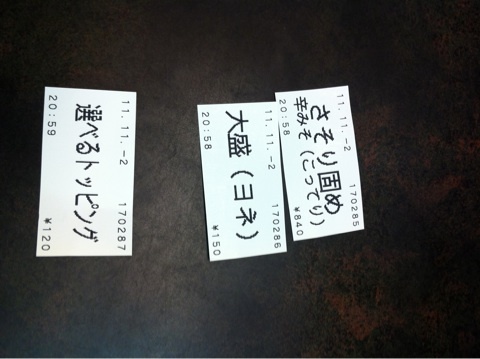 11.11.-2 170287
選べるトッピング
20:59 ¥120
11.11.-2 170286
大盛(ヨネ)
20:58 ¥150
11.11.-2 170285
さそり固め
辛みそ(こってり)
20:58 ¥840